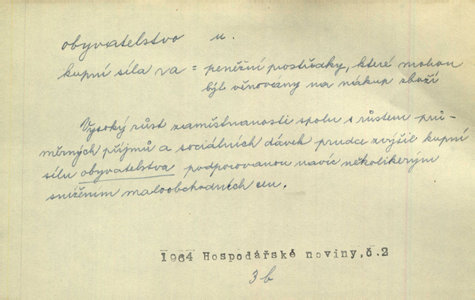 obyvatelstvo n.
kupní síla va = peněžní prostředky, které mohou
být věnovány na nákup zboží
Vysoký růst zaměstnanosti spolu s růstem prů-
měrných příjmů a sociálních dávek prudce zvýšil kupní
sílu obyvatelstva podporovanou navíc několikerým
snížením maloobchodních cen.
1964 Hospodářské noviny,č.2
3b